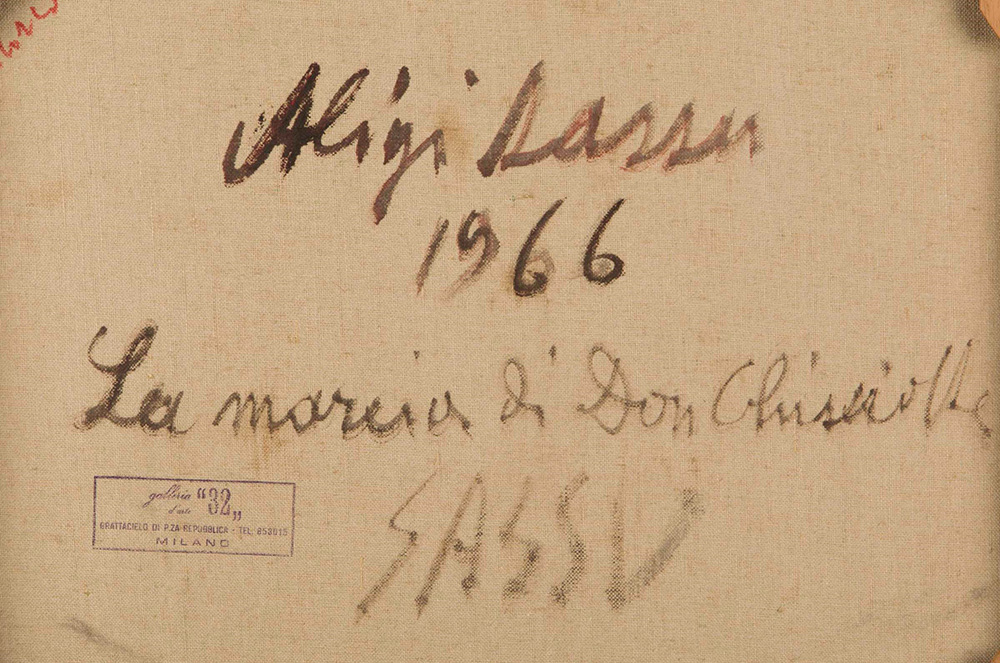 Aligi Sassu
1966
La marcia di Don Chisciotte
galleria "32„
d'arte
GRATTACIELO DI P.ZA REPUBBLICA - TEL. 653015
MILANO
SASSU